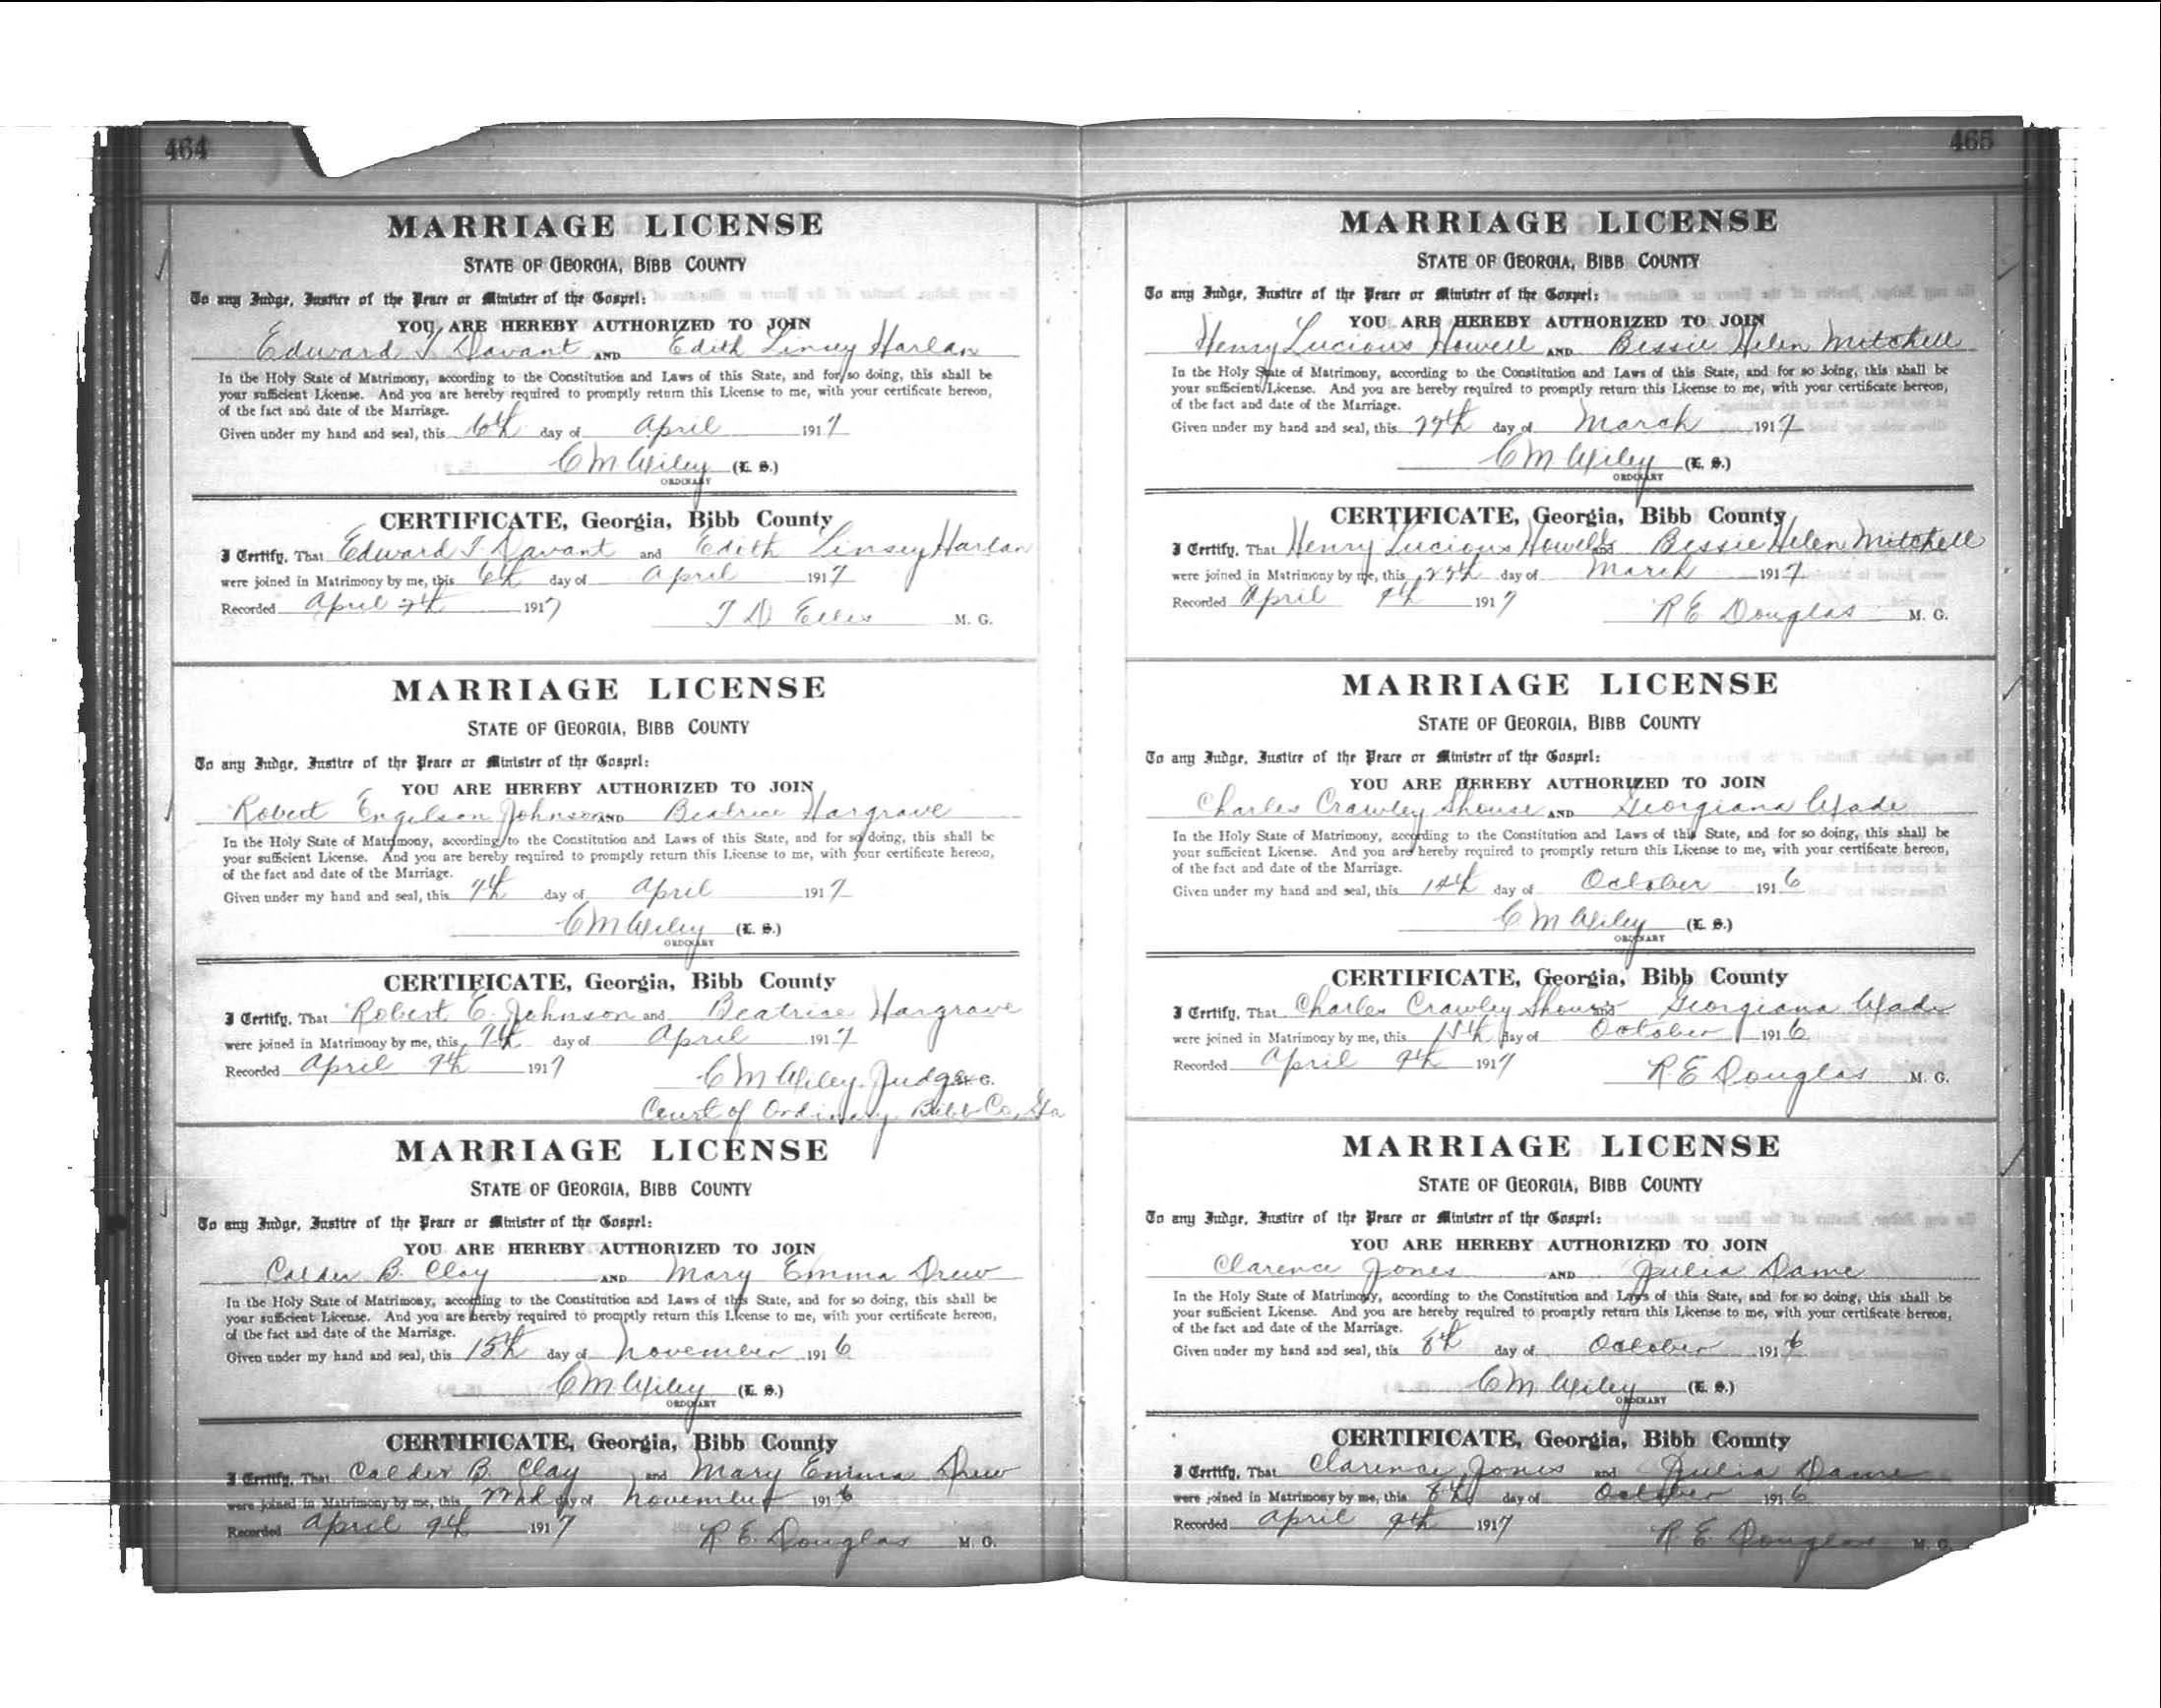 464
MARRIAGE LICENSE
STATE OF GEORGIA, BIBB COUNTY
To any Judge, Justice of the Peace or Minister of the Gospel:
YOU ARE HEREBY AUTHORIZED TO JOIN
Edward T Davant AND Edith Linsey Harlan
In the Holy State of Matrimony, according to the Constitution and Laws of this State, and for so doing, this shall be
your sufficient License. And you are hereby required to promptly return this License to me, with your certificate hereon,
of the fact and date of the Marriage.
Given under my hand and seal, this 6th day of April 1917
C M Wiley (L. S.)
ORDINARY
CERTIFICATE, Georgia, Bibb County
I Certify, That Edward T Davant and Edith Linsey Harlan
were joined in Matrimony by me, this 6th day of April 1917
Recorded April 7th 1917
T D Ellis M. G.
MARRIAGE LICENSE
STATE OF GEORGIA, BIBB COUNTY
To any Judge, Justice of the Peace or Minister of the Gospel:
YOU ARE HEREBY AUTHORIZED TO JOIN
Robert Engelson Johnson AND Beatrice Hargrave
In the Holy State of Matrimony, according to the Constitution and Laws of this State, and for so doing, this shall be
your sufficient License. And you are hereby required to promptly return this License to me, with your certificate hereon,
of the fact and date of the Marriage.
Given under my hand and seal, this 7th day of April 1917
C M Wiley (L. S.)
ORDINARY
CERTIFICATE, Georgia, Bibb County
I Certify, That Robert E. Johnson and Beatrice Hargrave
were joined in Matrimony by me, this 7th day of April 1917
Recorded April 9th 1917
C M Wiley, Judge
Court of Ordinary Bibb Co, Ga
MARRIAGE LICENSE
STATE OF GEORGIA, BIBB COUNTY
To any Judge, Justice of the Peace or Minister of the Gospel:
YOU ARE HEREBY AUTHORIZED TO JOIN
Calder B. Clay AND Mary Emma Drew
In the Holy State of Matrimony, according to the Constitution and Laws of this State, and for so doing, this shall be
your sufficient License. And you are hereby required to promptly return this License to me, with your certificate hereon,
of the fact and date of the Marriage.
Given under my hand and seal, this 15th day of November 1916
C M Wiley (L. S.)
ORDINARY
CERTIFICATE, Georgia, Bibb County
I Certify, That Calder B. Clay and Mary Emma Drew
were joined in Matrimony by me, this 22nd day of November 1916
Recorded April 9th 1917
R E. Douglas M. G.
465
MARRIAGE LICENSE
STATE OF GEORGIA, BIBB COUNTY
To any Judge, Justice of the Peace or Minister of the Gospel:
YOU ARE HEREBY AUTHORIZED TO JOIN
Henry Lucious Howell AND Bessie Helen Mitchell
In the Holy State of Matrimony, according to the Constitution and Laws of this State, and for so doing, this shall be
your sufficient License. And you are hereby required to promptly return this License to me, with your certificate hereon,
of the fact and date of the Marriage.
Given under my hand and seal, this 27th day of March 1917
C M Wiley (L. S.)
ORDINARY
CERTIFICATE, Georgia, Bibb County
I Certify, That Henry Lucious Howell and Bessie Helen Mitchell
were joined in Matrimony by me, this 27th day of March 1917
Recorded April 9th 1917
R E Douglas M. G.
MARRIAGE LICENSE
STATE OF GEORGIA, BIBB COUNTY
To any Judge, Justice of the Peace or Minister of the Gospel:
YOU ARE HEREBY AUTHORIZED TO JOIN
Charles Crawley Shouse AND Georgiana Wade
In the Holy State of Matrimony, according to the Constitution and Laws of this State, and for so doing, this shall be
your sufficient License. And you are hereby required to promptly return this License to me, with your certificate hereon,
of the fact and date of the Marriage.
Given under my hand and seal, this day of October 1916
C. M Wiley (L. S.)
ORDINARY
CERTIFICATE, Georgia, Bibb County
I Certify, That Charles Crawley Shouse and Georgiana Wade
were joined in Matrimony by me, this day of October 1916
Recorded April 9th 1917
R. E Douglas M. G.
MARRIAGE LICENSE
STATE OF GEORGIA, BIBB COUNTY
To any Judge, Justice of the Peace or Minister of the Gospel:
YOU ARE HEREBY AUTHORIZED TO JOIN
Clarence Jones AND Julia Dame
In the Holy State of Matrimony, according to the Constitution and Laws of this State, and for so doing, this shall be
your sufficient License. And you are hereby required to promptly return this License to me, with your certificate hereon,
of the fact and date of the Marriage.
Given under my hand and seal, this 8th day of October 1916
C M. Wiley (L. S.)
ORDINARY
CERTIFICATE, Georgia, Bibb County
I Certify, That Clarence Jones and Julia Dame
were joined in Matrimony by me, this 8th day of October 1916
Recorded April 9th 1917
R. E. Douglas M. G.